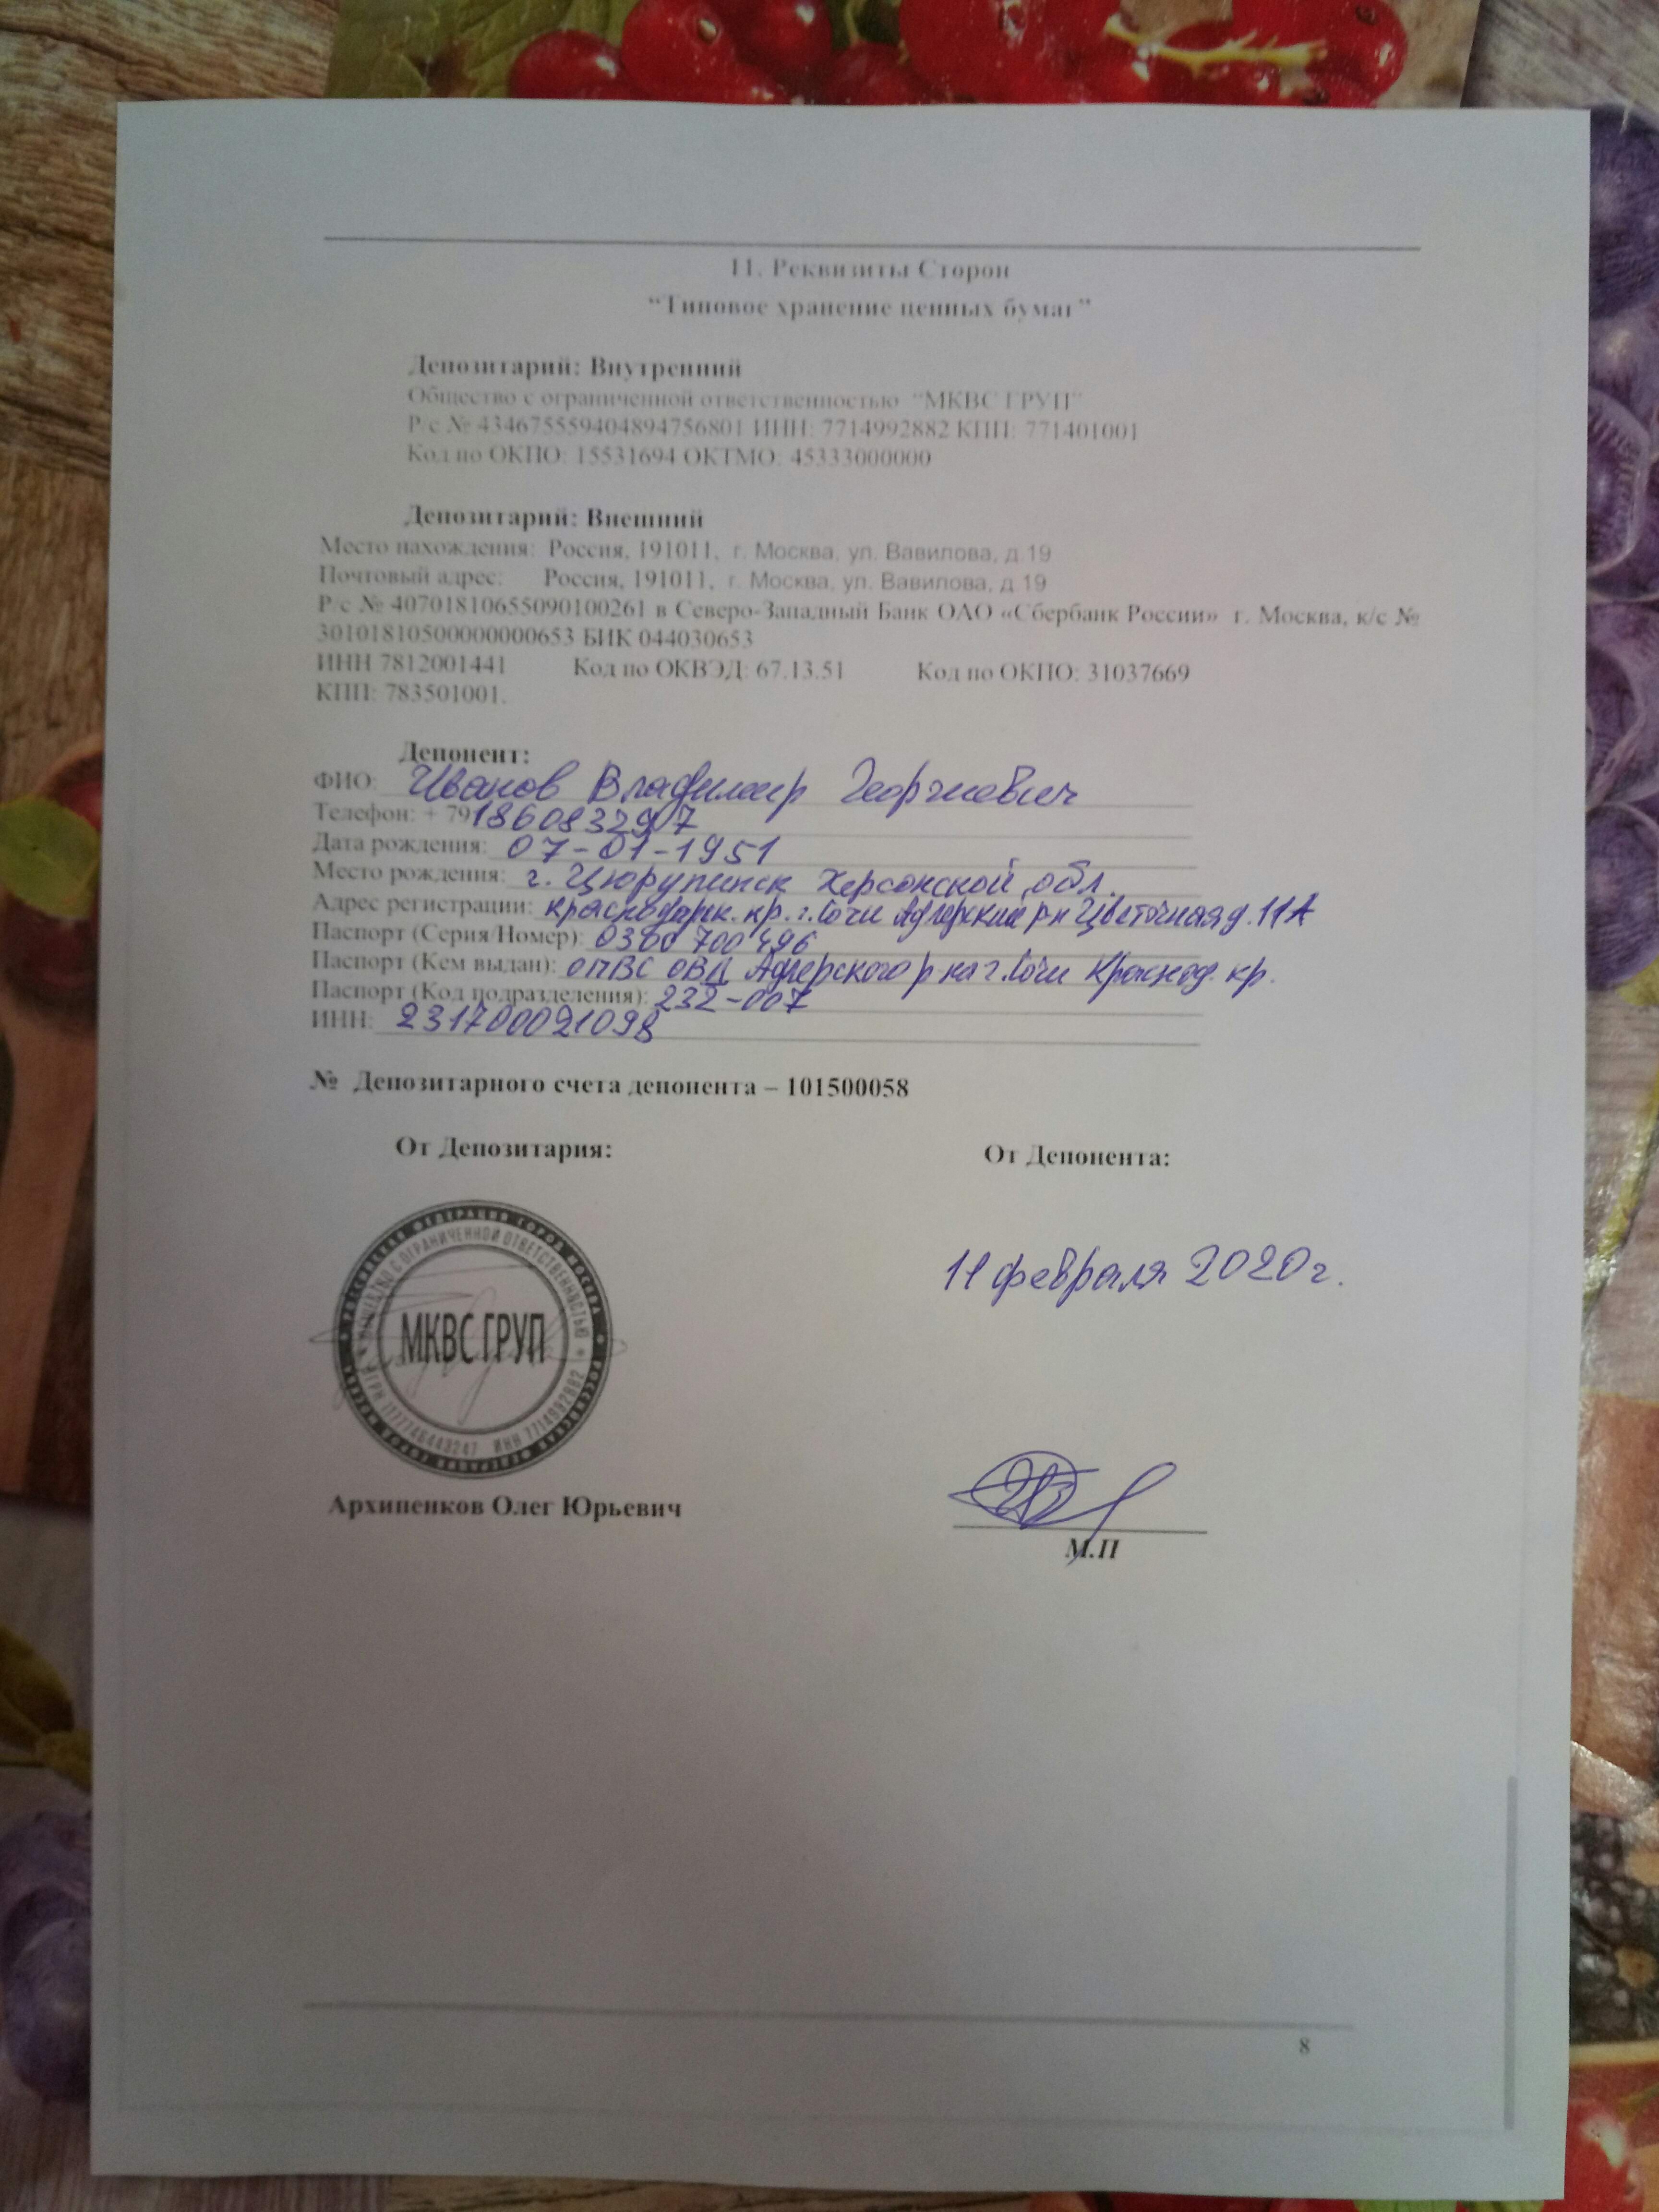 11. Реквизиты Сторон
“Типовое хранение ценных бумаг”
Депозитарий: Внутренний
Общество с ограниченной ответственностью “МКВС ГРУП”
Р/с № 434675559404894756801 ИНН: 7714992882 КПП: 771401001
Код по ОКПО: 15531694 ОКТМО: 45333000000
Депозитарий: Внешний
Место нахождения: Россия, 191011, г. Москва, ул. Вавилова, д.19
Почтовый адрес: Россия, 191011, г. Москва, ул. Вавилова, д.19
Р/с № 40701810655090100261 в Северо-Западный Банк ОАО «Сбербанк России» г. Москва, к/с №
30101810500000000653 БИК 044030653
ИНН 7812001441 Код по ОКВЭД: 67.13.51 Код по ОКПО: 31037669
КПП: 783501001.
Депонент:
ФИО: Иванов Владимир Георгиевич
Телефон: + 79186083297
Дата рождения: 07-01-1951
Место рождения: г. Цюрупинск Херсонской обл.
Адрес регистрации: Краснодарск. кр. г. Сочи Адлерский р-н Цветочная д. 11А
Паспорт (Серия/Номер): 0300 700496
Паспорт (Кем выдан): ОПВС ОВД Адлерского р-на г. Сочи Краснод. кр.
Паспорт (Код подразделения): 232-007
ИНН: 231700021098
№ Депозитарного счета депонента – 101500058
От Депозитария:
От Депонента:
РОССИЙСКАЯ ФЕДЕРАЦИЯ ГОРОД МОСКВА * РОССИЙСКАЯ ФЕДЕРАЦИЯ ГОРОД МОСКВА *
ОБЩЕСТВО С ОГРАНИЧЕННОЙ ОТВЕТСТВЕННОСТЬЮ *
МКВС ГРУП
ОГРН 1177746443247 ИНН 7714992882
11 февраля 2020г.
Архипенков Олег Юрьевич
М.П
8